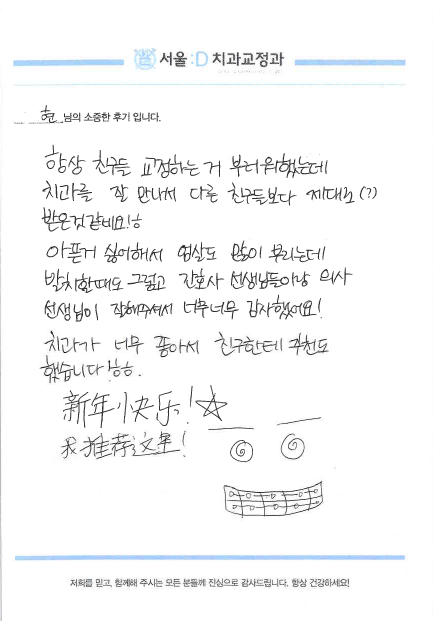 서울:D 치과교정과
현 님의 소중한 후기 입니다.
항상 친구들 교정하는 거 부러워했는데
치과를 잘 만나서 다른 친구들보다 제대로(?)
받은것같네요!ㅎ
아픈거 싫어해서 엄살도 많이 부리는데
발치할때도 그렇고 간호사 선생님들이랑 의사
선생님이 잘해주셔서 너무너무 감사했어요!
치과가 너무 좋아서 친구한테 추천도
했습니다ㅎㅎ.
新年快乐!
我推荐这里!
저희를 믿고, 함께해 주시는 모든 분들께 진심으로 감사드립니다. 항상 건강하세요!